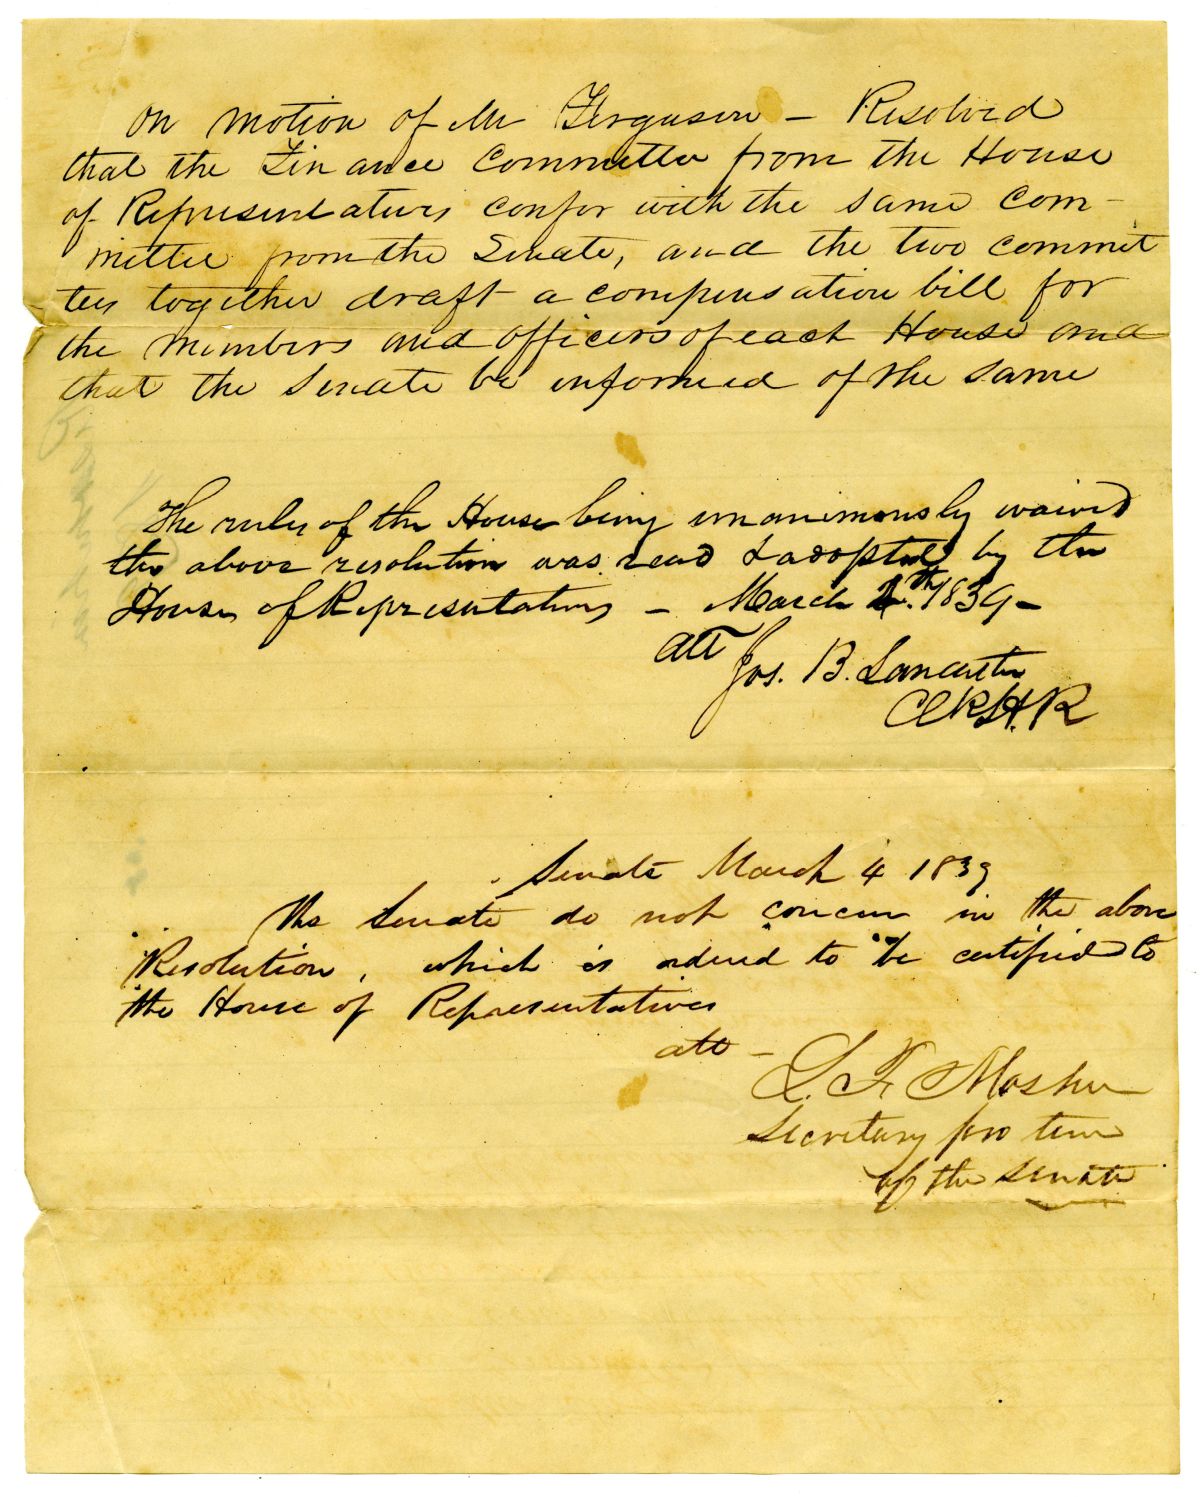 On motion of Mr Ferguson – Resolved
that the Finance Committee from the House
of Representatives confer with the same Com-
mittee from the Senate, and the two commit
tees together draft a compensation bill for
the members and officers of each House and
that the Senate be informed of the same
The rules of the House being unanimously waived
the above resolution was read & adopted by the
House of Representatives – March 1839 –
att Jos. B. Lancaster
Clk H. R
Senate March 4 1839
The Senate do not concur in the above
Resolution, which is ordered to be certified to
the House of Representatives
att –
L. F. Mosher
Secretary pro tem
of the Senate